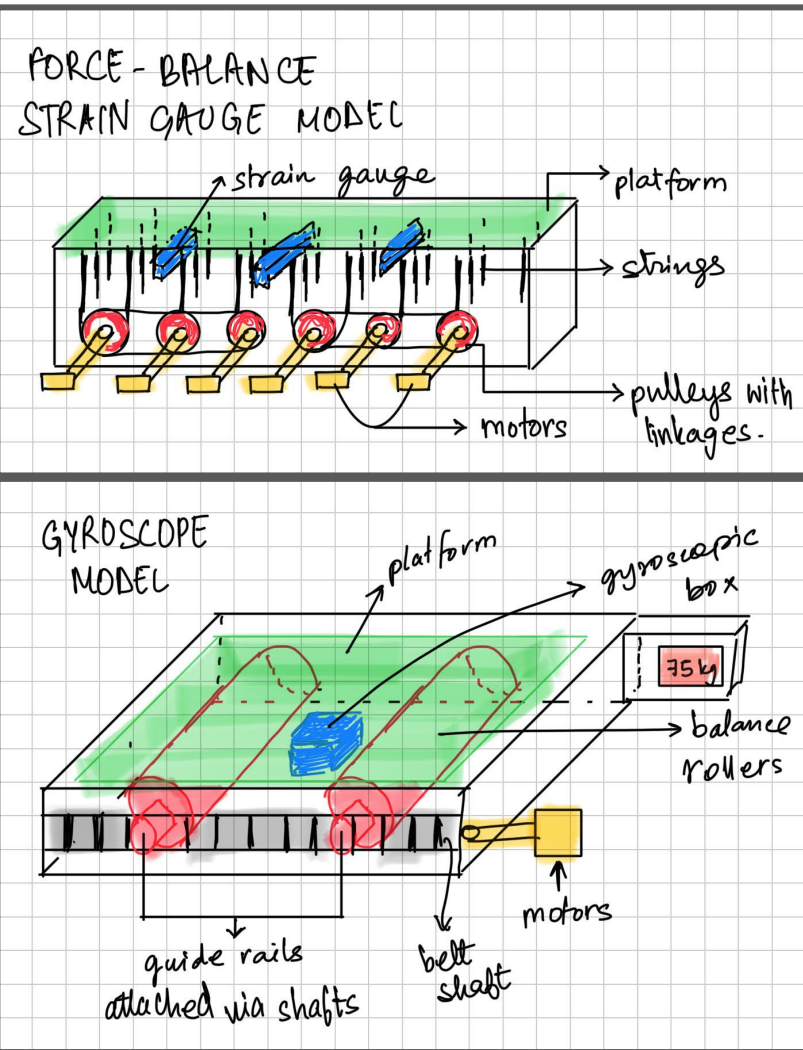 FORCE - BALANCE
STRAIN GAUGE MODEL
strain gauge
platform
strings
pulleys with
linkages.
motors
GYROSCOPE
MODEL
platform
gyroscopic
box
75kg
balance
rollers
motors
guide rails
attached via shafts
belt
shaft